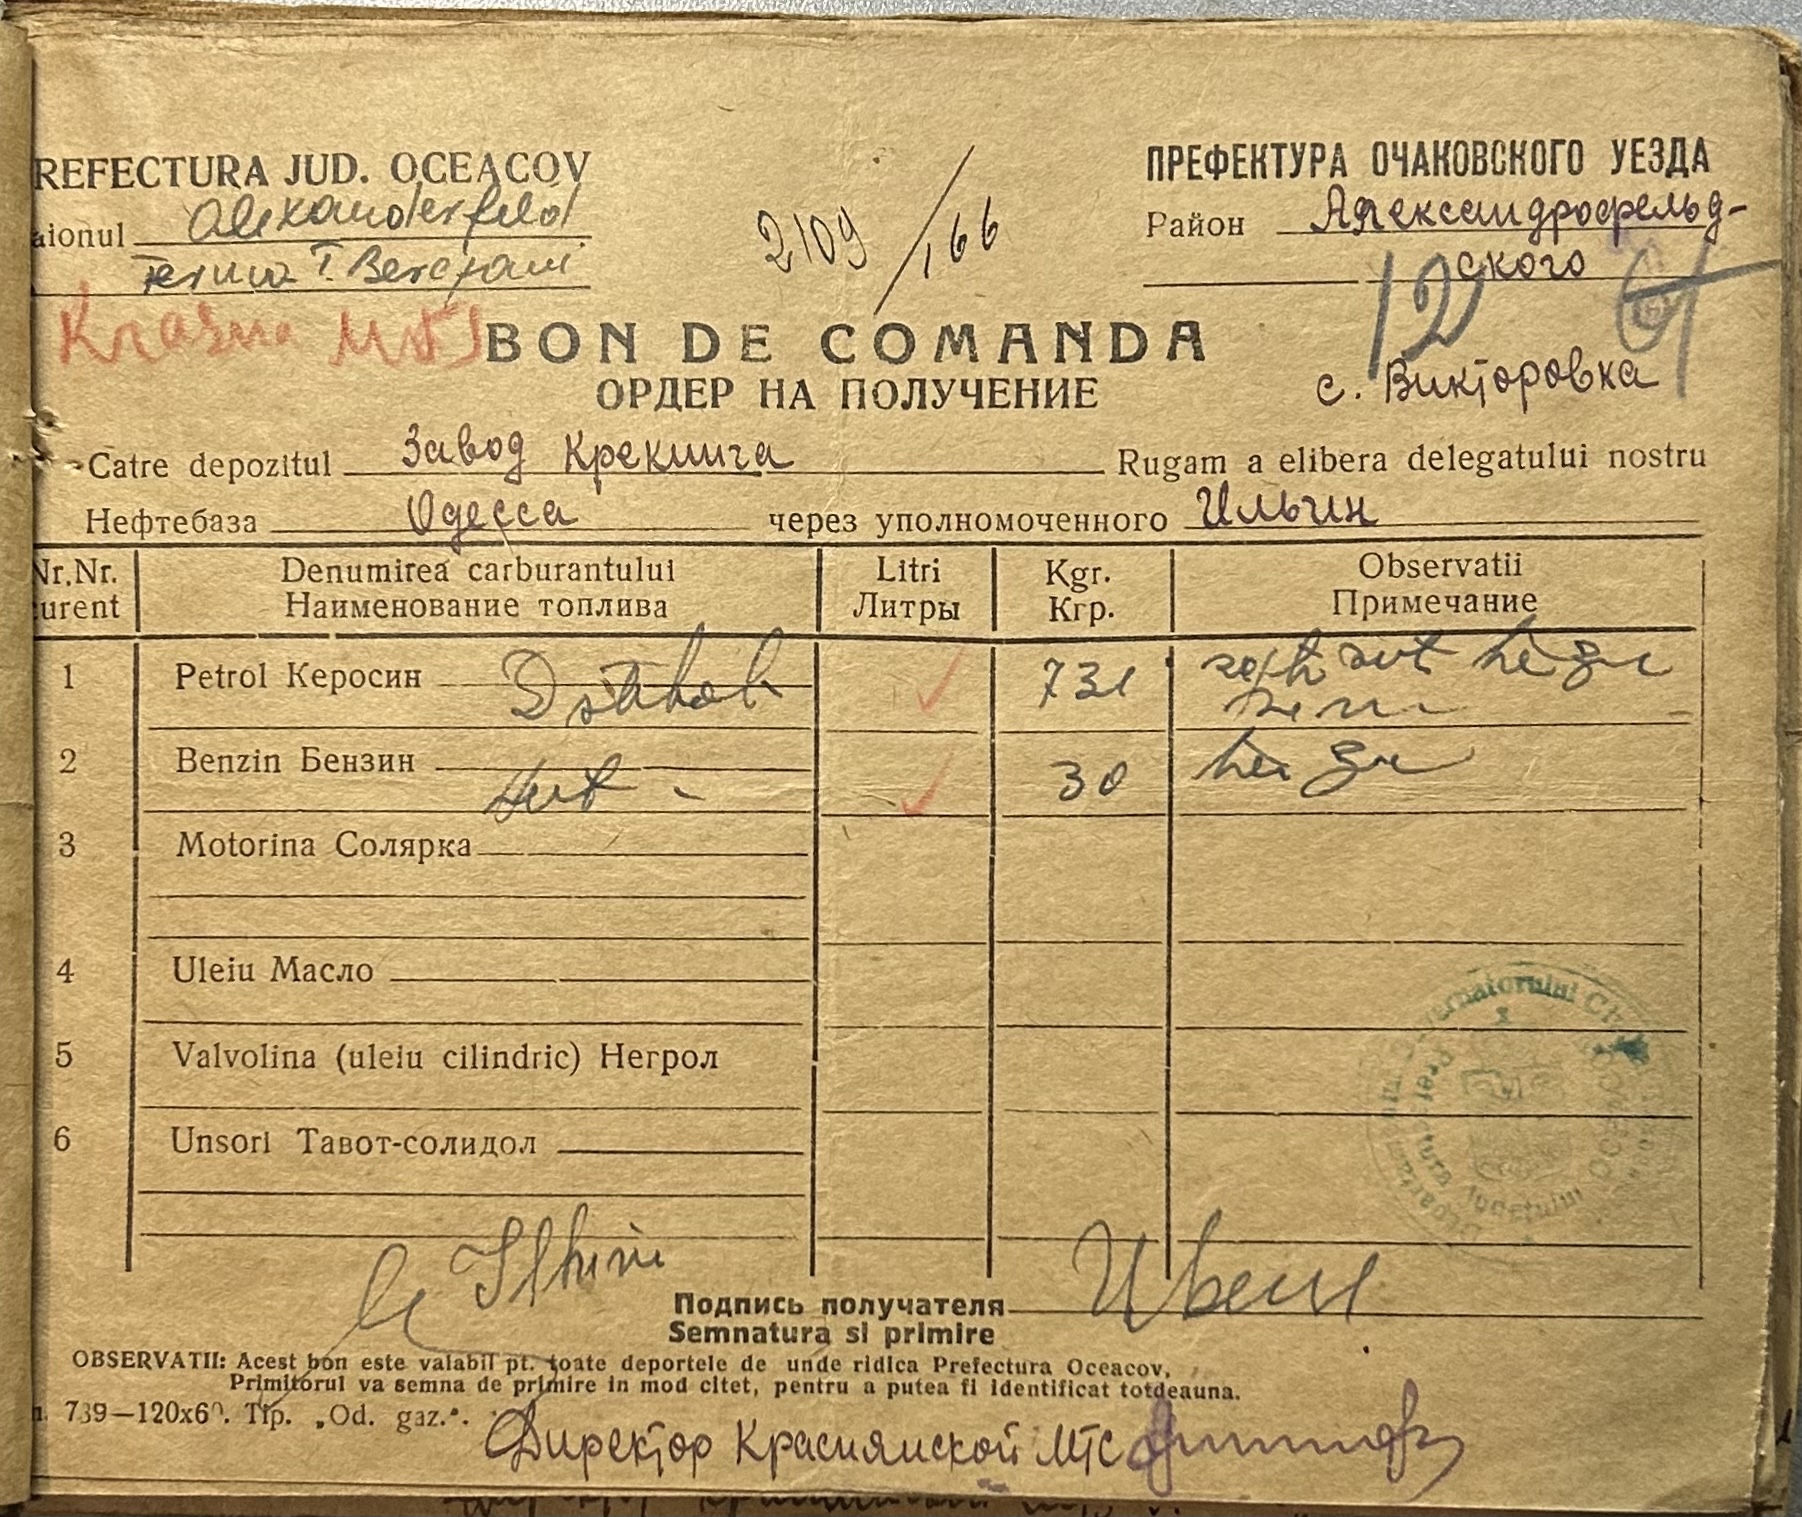 REFECTURA JUD. OCEACOV
ПРЕФЕКТУРА ОЧАКОВСКОГО УЕЗДА
aionul Alexanderfeld
2109/166
Район Александрофельд-
ского
Ferma T. Berezani
Krasna MTS
12
BON DE COMANDA
ОРДЕР НА ПОЛУЧЕНИЕ
с. Викторовка
Catre depozitul Завод Крекинга Rugam a elibera delegatului nostru
Нефтебаза Одесса через уполномоченного Ильин
Nr.Nr. Denumirea carburantului Litri Kgr. Observatii
urent Наименование топлива Литры Кгр. Примечание
1 Petrol Керосин 731
2 Benzin Бензин 30
3 Motorina Солярка
4 Uleiu Масло
5 Valvolina (uleiu cilindric) Негрол
6 Unsori Тавот-солидол
Prefectura Județului
Ilhin
Подпись получателя
Semnatura si primire
OBSERVATII: Acest bon este valabil pt. toate deportele de unde ridica Prefectura Oceacov,
Primitorul va semna de primire in mod citet, pentru a putea fi identificat totdeauna.
739—120x60. Tip. „Od. gaz.".
Директор Краснянской МТС